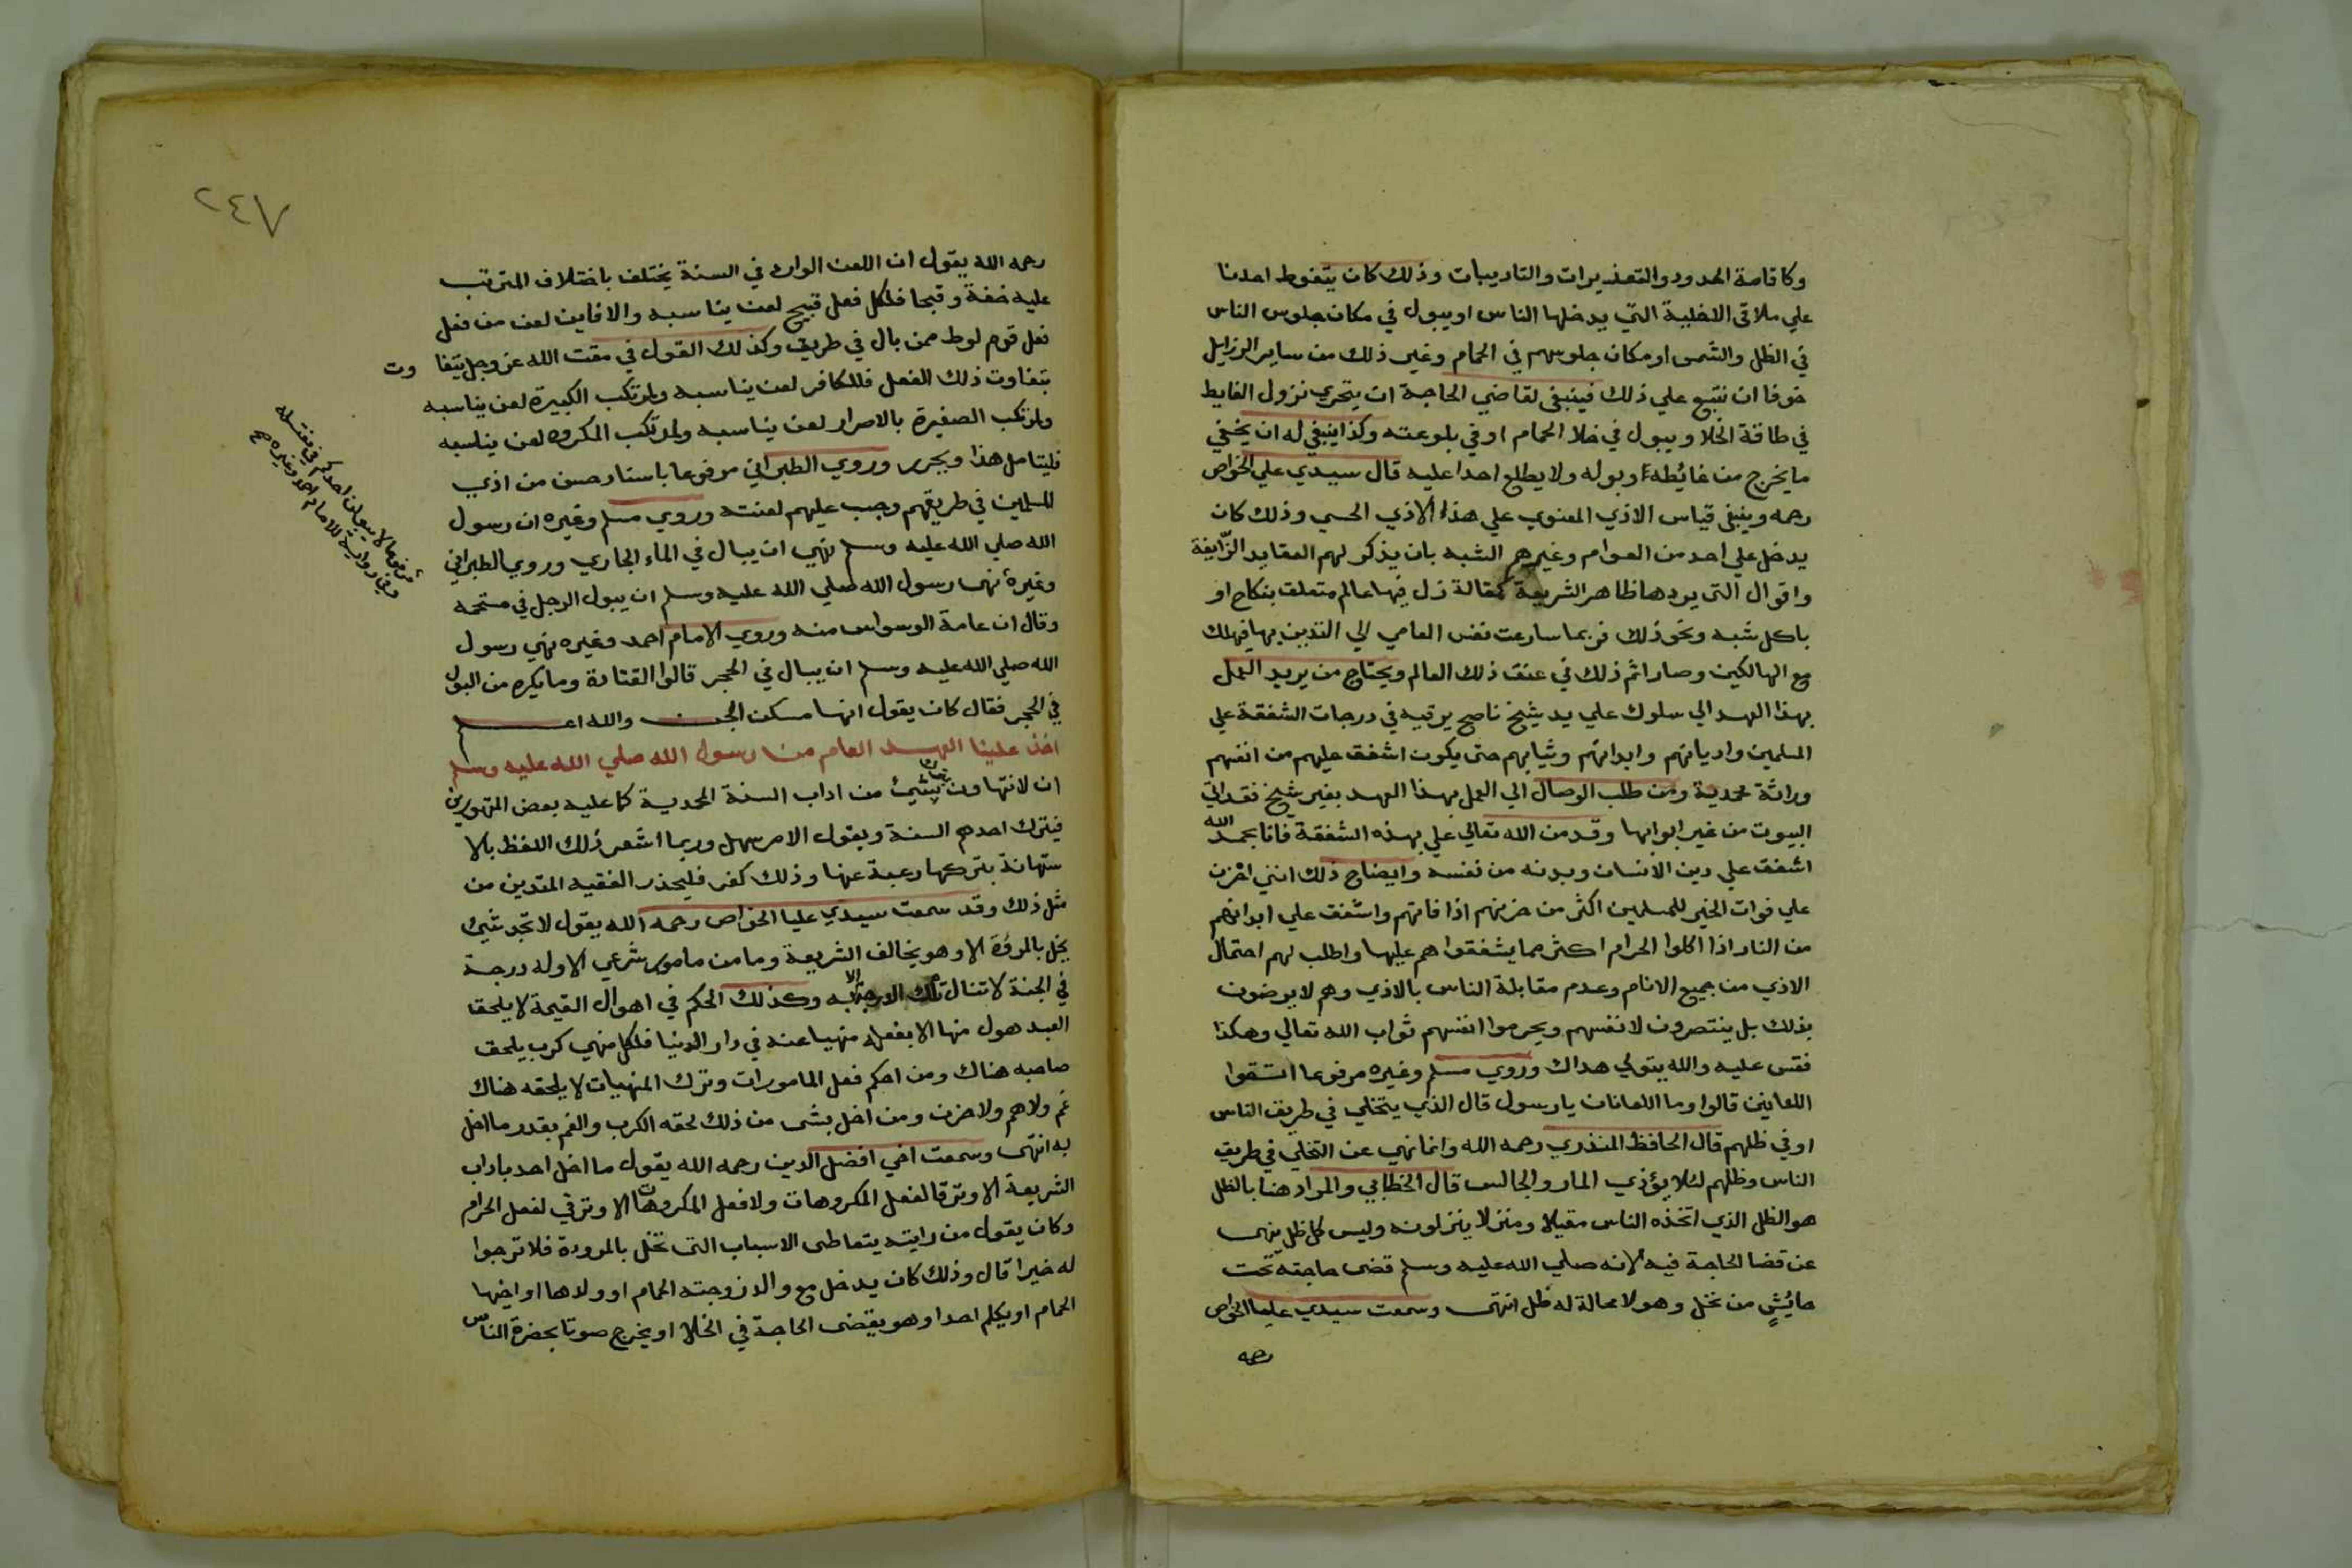 وكاقامة الحدود والتعذيرات والتاديبات وذلك كان يتغوط احدنا
علي ملاقي الاخلية التي يدخلها الناس اويبول في مكان جلوس الناس
في الظل والشمس او مكان جلوسهم في الحمام وغير ذلك من ساير الرزايل
خوفا ان نتبع علي ذلك فينبغي لقاضي الحاجة ان يتحري نزول الغايط
في طاقة الخلا ويبول في خلا الحمام او في بلوعته وكذا ينبغي له ان يخفي
ما يخرج من غائطه اوبوله ولا يطلع احدا عليه قال سيدي علي الخواص
رحمه وينبغي قياس الاذي المعنوي علي هذا الاذي الحسي وذلك كان
يدخل علي احد من العوام وغيرهم الشبه بان يذكر لهم العقايد الزايغة
واقوال التي يردها ظاهر الشريعة كمقالة زل فيها عالم متعلق بنكاح او
باكل شبه ونحو ذلك فربما سارعت نفس العامي الي التدين بها فيهلك
مع الهالكين وصار اثم ذلك في عنق ذلك العالم ويحتاج من يريد العمل
بهذا العهد الي سلوك علي يد شيخ ناصح يرقيه في درجات الشفقة علي
المسلمين واديانهم وابدانهم وثيابهم حتي يكون اشفق عليهم من انفسهم
وراثة محمدية ومن طلب الوصال الي العمل بهذا العهد بغير شيخ فقد اتي
البيوت من غير ابوابها وقد من الله تعالي علي بهذه الشفقة فانا بحمد الله
اشفق علي دين الانسان وبدنه من نفسه وايضاح ذلك انني احزن
علي فوات الخير للمسلمين اكثر من حزنهم اذا فاتهم واشفق علي ابدانهم
من النار اذا اكلوا الحرام اكثر مما يشفقوا هم عليها واطلب لهم احتمال
الاذي من جميع الانام وعدم مقابلة الناس بالاذي وهم لا يرضون
بذلك بل ينتصرون لانفسهم ويحرموا انفسهم ثواب الله تعالي وهكذا
فقس عليه والله يتولي هداك وروي مسلم وغيره مرفوعا اتقوا
اللعانين قالوا وما اللعانان يا رسول قال الذي يتخلي في طريق الناس
او في ظلهم قال الحافظ المنذري رحمه الله وانما نهي عن التخلي في طريق
الناس وظلهم لئلا يؤذي المار والجالس قال الخطابي والمراد هنا بالظل
هو الظل الذي اتخذه الناس مقيلا ومنزلا ينزلونه وليس كل ظل ينهي
عن قضا الحاجة فيه لانه صلي الله عليه وسلم قضي حاجته تحت
حائش من نخل وهو لا محالة له ظل انتهي وسمعت سيدي عليا الخواص
رحمه
٢٤٧
رحمه الله يقول ان اللعن الوارد في السنة يختلف باختلاف المترتب
عليه خفة وقبحا فلكل فعل قبيح لعن يناسبه والا فاين لعن من فعل
فعل قوم لوط ممن بال في طريق وكذلك القول في مقت الله عز وجل يتفا وت
بتفاوت ذلك الفعل فللكافر لعن يناسبه ولمرتكب الكبيرة لعن يناسبه
ولمرتكب الصغيرة بالاصرار لعن يناسبه ولمرتكب المكروه لعن يناسبه
فليتامل هذا ويحرر وروي الطبراني مرفوعا باسناد حسن من اذي
المسلمين في طريقهم وجب عليهم لعنته وروي مسلم وغيره ان رسول
الله صلي الله عليه وسلم نهي ان يبال في الماء الجاري وروي الطبراني
وغيره نهي رسول الله صلي الله عليه وسلم ان يبول الرجل في مستحمه
وقال ان عامة الوسواس منه وروي الامام احمد وغيره نهي رسول
الله صلي الله عليه وسلم ان يبال في الحجر قالوا القتادة وما يكره من البول
في الحجر فقال كان يقول انها مسكن الجن والله اعلم
اخذ علينا العهد العام من رسول الله صلي الله عليه وسلم
ان لا نتهاون بشيئ من اداب السنة المحمدية كما عليه بعض المتهورين
فيترك احدهم السنة ويقول الامر سهل وربما اشعر ذلك اللفظ بالا
ستهانة بتركها رغبة عنها وذلك كفر فليحذر الفقيه المتدين من
مثل ذلك وقد سمعت سيدي عليا الخواص رحمه الله يقول لا تجد شيئ
يخل بالمروة الا وهو يخالف الشريعة وما من مامور شرعي الا وله درجة
في الجنة لا تنال تلك الدرجة الا به وكذلك الحكم في اهوال القيمة لا يلحقا
العبد هول منها الا بفعله منهيا عنه في دار الدنيا فلكل منهي كرب يلحق
صاحبه هناك ومن احكم فعل المامورات وترك المنهيات لا يلحقه هناك
غم ولا هم ولا حزن ومن اخل بشي من ذلك لحقه الكرب والغم بقدر ما اخل
به انتهي وسمعت اخي افضل الدين رحمه الله يقول ما اخل احد باداب
الشريعة الا وترقا لفعل المكروهات ولا فعل المكروهات الا وترقي لفعل الحرام
وكان يقول من رايته يتعاطي الاسباب التي تخل بالمرودة فلا ترجوا
له خيرا قال وذلك كان يدخل مع والد زوجته الحمام او ولدها او اخيها
الحمام او يكلم احدا وهو يقضي الحاجة في الخلا او يخرج صوتا بحضرة الناس
مرفوعا لا يبولن احدكم في مغتسله
وفي رواية للامام احمد وغيره